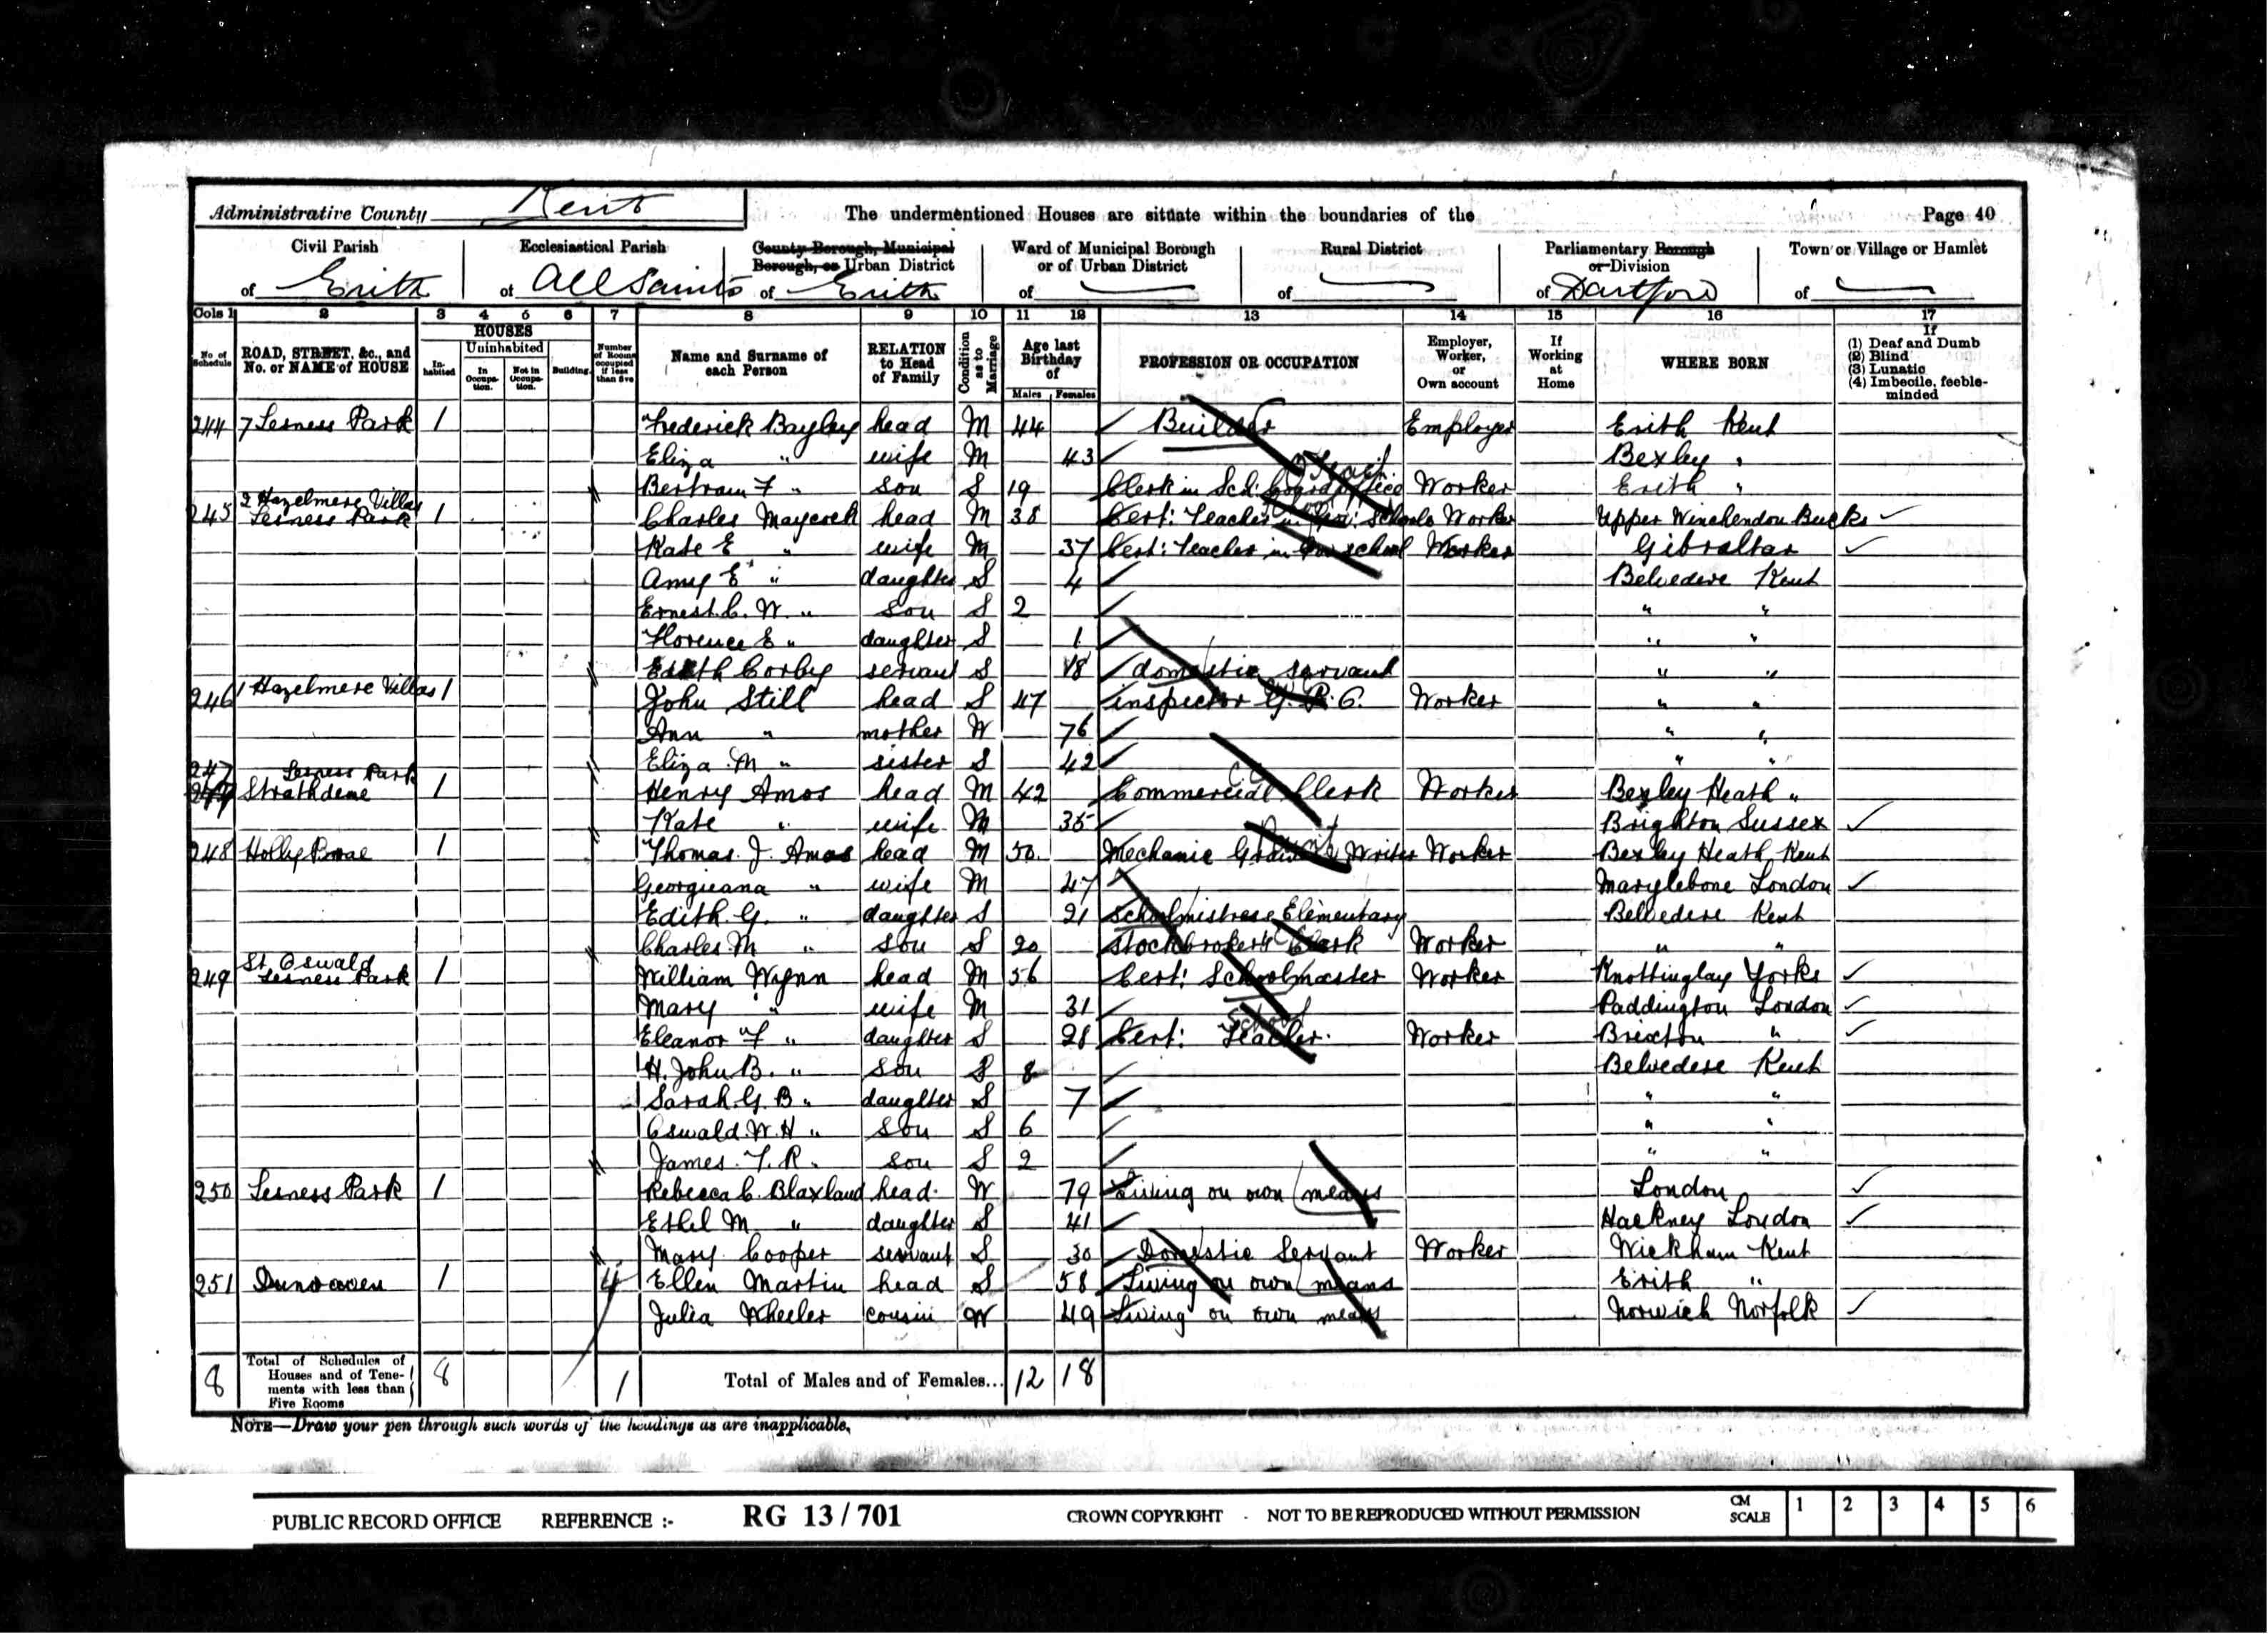 Administrative County Kent The undermentioned Houses are situate within the boundaries of the Page 40
Civil Parish Ecclesiastical Parish County Borough, Municipal Borough, or Urban District Ward of Municipal Borough or of Urban District Rural District Parliamentary Borough or Division Town or Village or Hamlet
of Erith of All Saints of Erith of of of Dartford of
Cols 1 2 3 4 5 6 7 8 9 10 11 12 13 14 15 16 17
No of Schedule ROAD, STREET, &c., and No. or NAME of HOUSE HOUSES Inhabited Uninhabited In Occupation. Not in Occupation. Building. Number of Rooms occupied if less than five Name and Surname of each Person RELATION to Head of Family Condition as to Marriage Age last Birthday of Males Females PROFESSION OR OCCUPATION Employer, Worker, or Own account If Working at Home WHERE BORN If (1) Deaf and Dumb (2) Blind (3) Lunatic (4) Imbecile, feeble-minded
244 7 Lesness Park 1 Frederick Bayley head M 44 Builder Employer Erith Kent
Eliza " wife M 43 Bexley "
Bertram F " son S 19 Clerk in Sch: Board office Worker Erith "
245 2 Hazelmere Villas Lesness Park 1 Charles Maycock head M 38 Cert: Teacher in Schools Worker Upper Winchendon Bucks
Kate E " wife M 37 Cert: Teacher in school Worker Gibraltar
Amy E " daughter S 4 Belvedere Kent
Ernest C. W. " son S 2 " "
Florence E " daughter S 1 " "
Edith Corby servant S 18 domestic servant " "
246 1 Hazelmere Villas 1 John Still head S 47 inspector Worker " "
Ann " mother W 76 " "
Eliza M " sister S 42 " "
247 Lesness Park Strathdene 1 Henry Amos head M 42 Commercial Clerk Worker Bexley Heath "
Kate " wife M 35 Brighton Sussex
248 Holly 1 Thomas J. Amos head M 50 Mechanic Writer Worker Bexley Heath Kent
Georgieana " wife M 47 Marylebone London
Edith G. " daughter S 21 Schoolmistress Elementary Belvedere Kent
Charles M " son S 20 Stockbroker's Clerk Worker " "
249 St. Oswald Lesness Park 1 William Wynn head M 56 Cert: Schoolmaster Worker Knottinglay Yorks
Mary " wife M 31 Paddington London
Eleanor F " daughter S 28 Cert: School Teacher Worker Brixton "
H. John B. " son S 8 Belvedere Kent
Sarah G. B " daughter S 7 " "
Oswald W. H " son S 6 " "
James. T. R. son S 2 " "
250 Lesness Park 1 Rebecca C. Blaxland head W 79 Living on own means London
Ethel M " daughter S 41 Hackney London
Mary Cooper servant S 30 Domestic Servant Worker Wickham Kent
251 1 4 Ellen Martin head S 58 Living on own means Erith "
Julia Wheeler cousin W 49 Living on own means Norwich Norfolk
8 Total of Schedules of Houses and of Tenements with less than Five Rooms 8 1 Total of Males and of Females... 12 18
NOTE—Draw your pen through such words of the headings as are inapplicable.
PUBLIC RECORD OFFICE REFERENCE :- RG 13 / 701 CROWN COPYRIGHT - NOT TO BE REPRODUCED WITHOUT PERMISSION CM SCALE 1 2 3 4 5 6